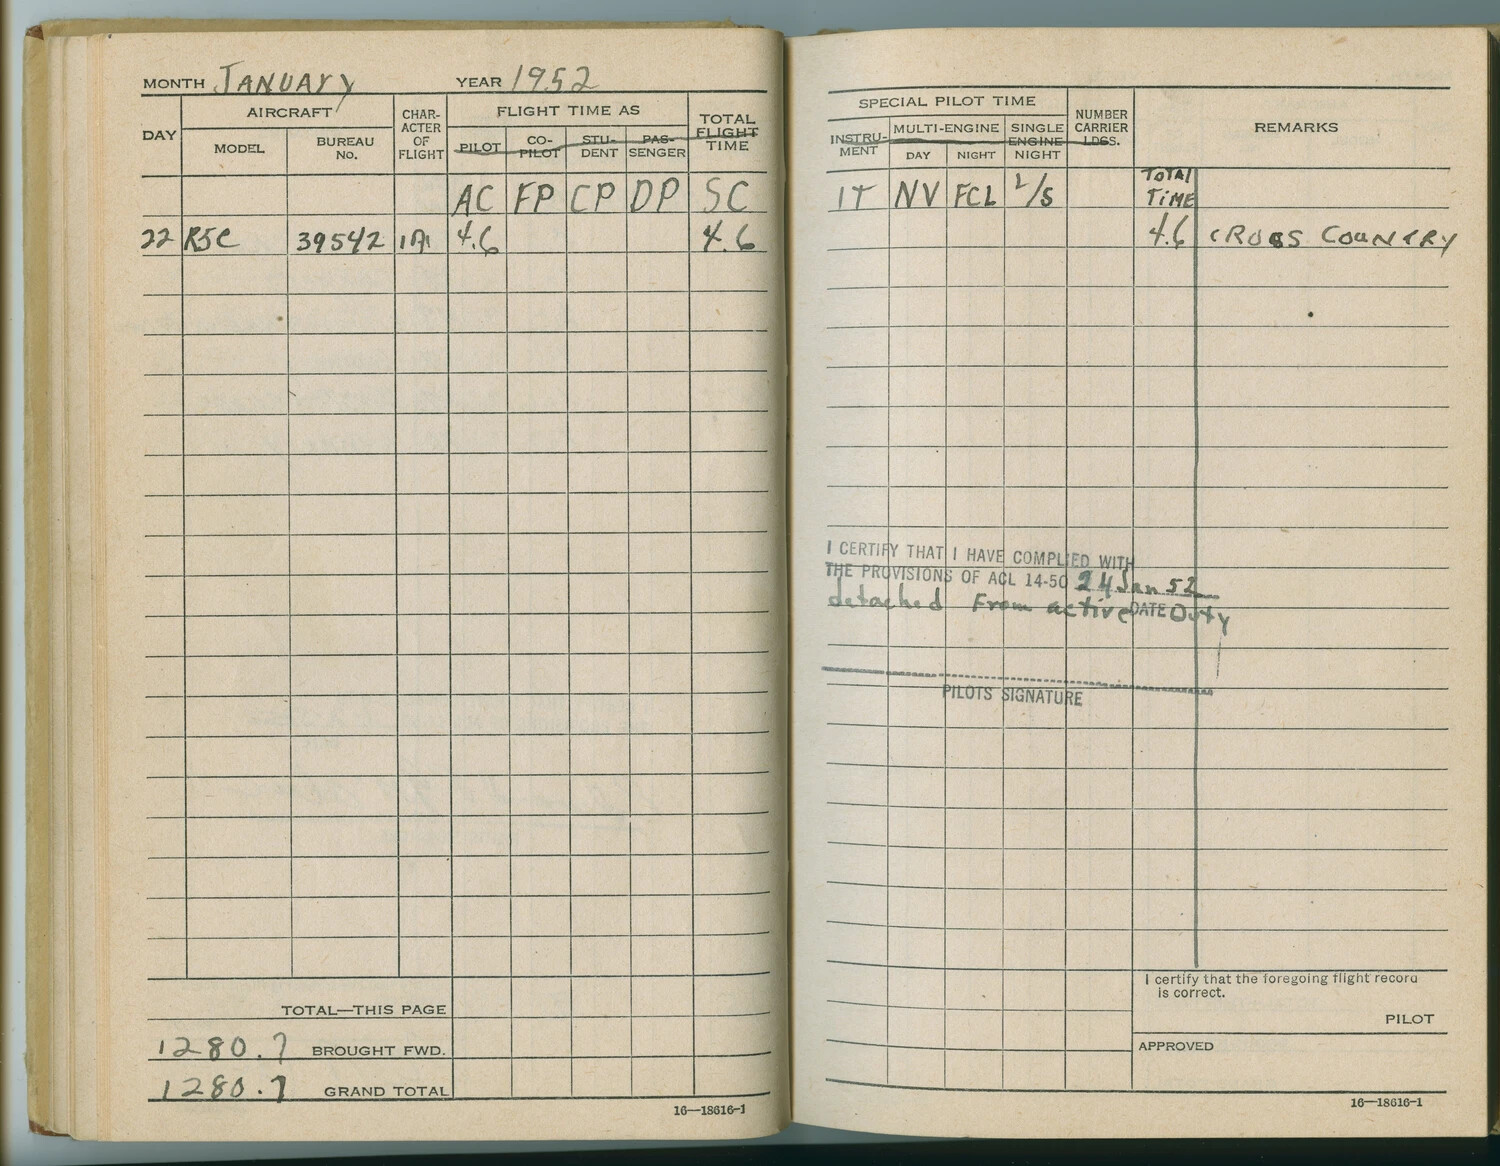 MONTH JANUARY YEAR 1952
DAY AIRCRAFT CHAR-ACTER OF FLIGHT FLIGHT TIME AS TOTAL FLIGHT TIME
MODEL BUREAU No. PILOT CO-PILOT STU-DENT PAS-SENGER
AC FP CP DP SC
22 R5C 39542 1A1 4.6 4.6
TOTAL—THIS PAGE
1280.7 BROUGHT FWD.
1280.7 GRAND TOTAL
16—18616-1
SPECIAL PILOT TIME NUMBER CARRIER LDGS. REMARKS
INSTRU-MENT MULTI-ENGINE SINGLE ENGINE NIGHT
DAY NIGHT
IT NV FCL L/S TOTAL TIME
4.6 CROSS COUNTRY
I CERTIFY THAT I HAVE COMPLIED WITH
THE PROVISIONS OF ACL 14-50 24 Jan 52
detached From active DATE Duty
PILOTS SIGNATURE
I certify that the foregoing flight record
is correct.
PILOT
APPROVED
16—18616-1